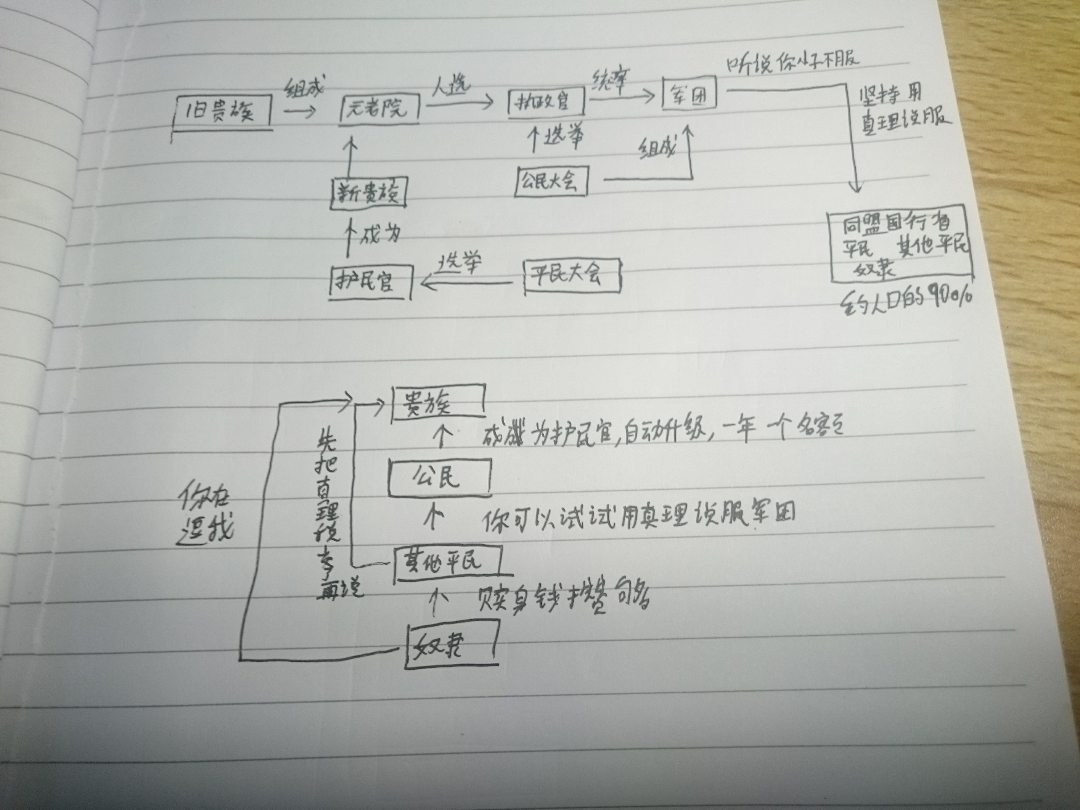 旧贵族
组成
元老院
人选
执政官
统率
军团
听说你小子不服
坚持用
真理说服
选举
公民大会
组成
新贵族
成为
护民官
选举
平民大会
同盟国行省
平民 其他平民
奴隶
约人口的90%
贵族
成为护民官,自动升级,一年一个名额
公民
你可以试试用真理说服军团
其他平民
赎身钱
奴隶
先把真理
再说
你在
逗我